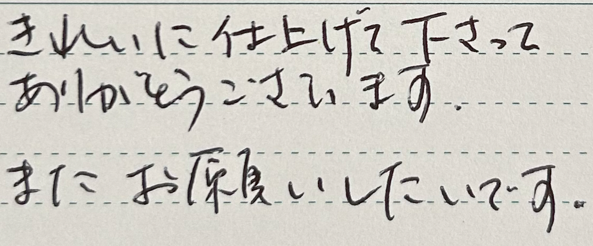 きれいに仕上げて下さって
ありがとうございます.
またお願いしたいです。